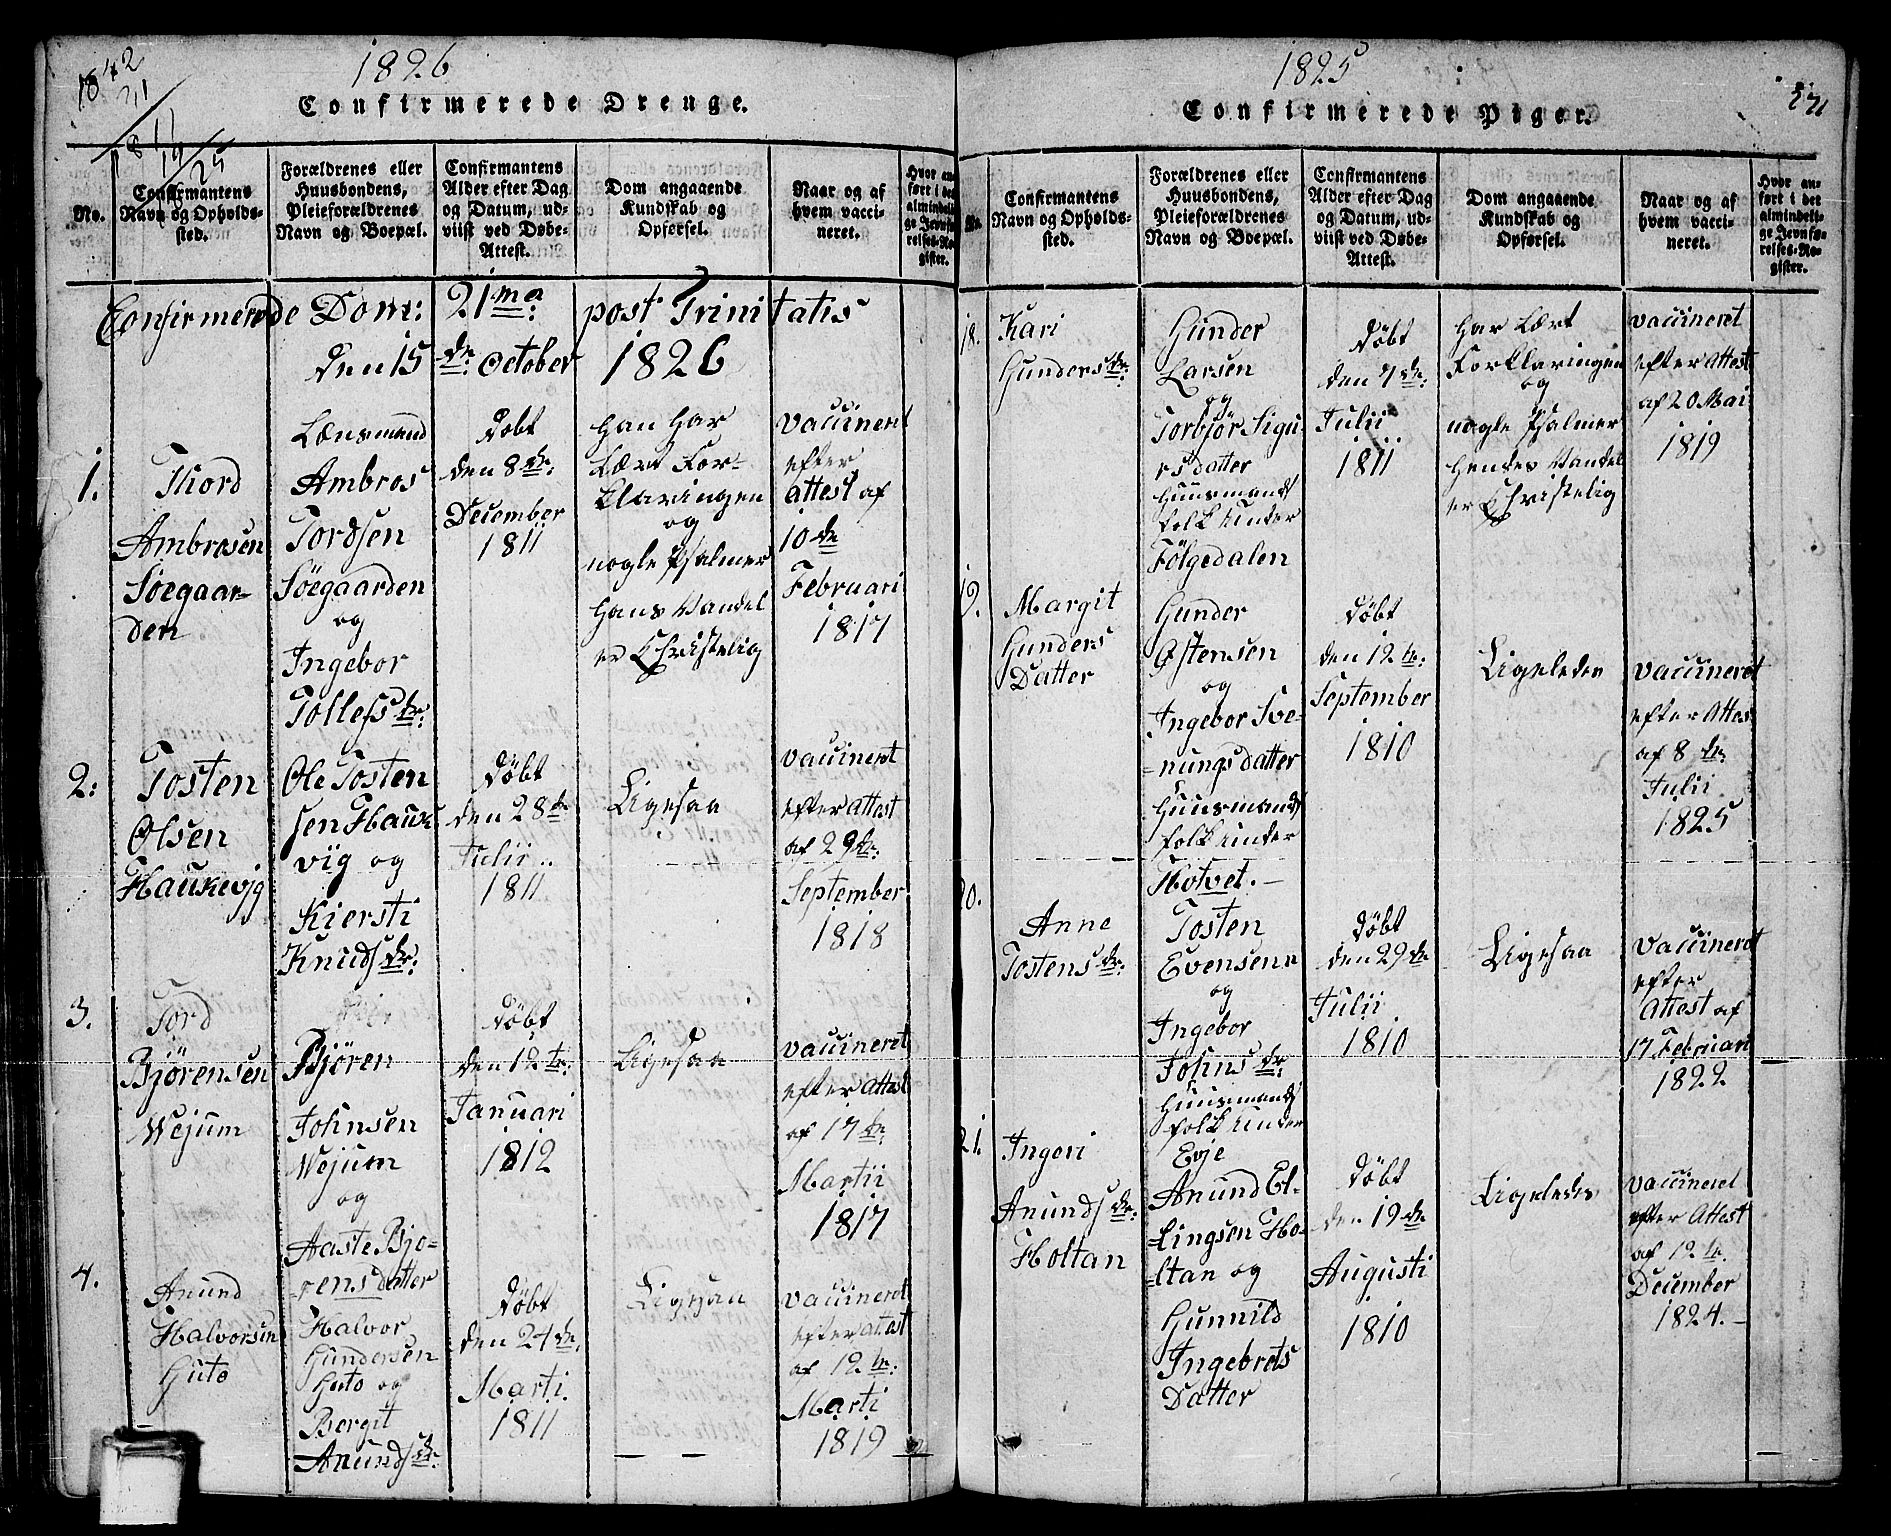 1826
Confirmerede Drenge.
No.
Confirmantens
Navn og Opholds-
sted.
Forældrenes eller
Huusbondens,
Pleieforældrenes
Navn og Boepæl.
Confirmantens
Alder efter Dag
og Datum, ud-
viist ved Døbe-
Attest.
Dom angaaende
Kundskab og
Opførsel.
Naar og af
hvem vacci-
neret.
Hvor an-
ført i det
almindeli-
ge Jevnfø-
relses-Re-
gister.
Confirmerede Dom: 21ma: post Trinitatis
den 15de: October 1826
1.
Thord
Ambrosen
Søegaar-
den
Lænsmand
Ambros
Tordsen
Søegaarden
og
Ingebor
Tollefsdr:
Døbt
den 8de:
December
1811
Han har
Lært For-
klaringen
og
nogle Psalmer
Hans Vandel
er Christelig
Vaccineret
efter
Attest af
10de
Februari
1817
2:
Tosten
Olsen
Haukevjg
Ole Tosten
sen Hauk
vig og
Kiersti
Knudsdr:
Døbt
den 28de
Julii
1811
Ligesaa
Vaccineret
efter Attest
af 29de:
September
1818
3.
Tord
Bjørensen
Wejum
Bjøren
Johnsen
Wejum
og
Aaste Bjo-
rensdatter
Døbt
den 12te:
Januari
1812
Ligesaa
Vaccineret
efter Attest
af 17de
Martii
1817
4.
Anund
Halvorsen
Guto
Halvor
Gundersen
Guto og
Bergit
Anundsdr:
Døbt
den 24de
Marti
1811
Ligesaa
Vaccineret
efter Attest
af 12te:
Marti
1819
1825
Confirmerede Piger.
No.
Confirmantens
Navn og Opholds-
sted.
Forældrenes eller
Huusbondens,
Pleieforældrenes
Navn og Boepæl.
Confirmantens
Alder efter Dag
og Datum, ud-
viist ved Døbe-
Attest.
Dom angaaende
Kundskab og
Opførsel.
Naar og af
hvem vacci-
neret.
Hvor an-
ført i det
almindeli-
ge Jevnfø-
relses-Re-
gister.
18.
Kari
Gundersdr:
Gunder
Larsen
og
Torbjør Sigu-
rsdatter
Huusmands
folk under
Fölgedalen
Døbt
den 7de:
Julii
1811
Har Lært
Forklaringen
og
nogle Psalmer
Hendes Vandel
er Christelig
Vaccineret
efter Attest
af 20 Mai
1819
19.
Margit
Gunders
Datter
Gunder
Østensen
og
Ingebor Sve-
nungsdatter
Huusmands
folk under
Hotvet.
Døbt
den 12te:
September
1810
Ligeledes
Vaccineret
efter Attes
af 8de:
Julii
1825
20.
Anne
Tostensdr:
Tosten
Evensen
og
Ingebor
Johnsdr:
Huusmands
folk under
Evje
Døbt
den 29de
Julii
1810
Ligesaa
Vaccineret
efter
Attest af
17 Februari
1822
21.
Ingeri
Anundsdr:
Holtan
Anund El-
lingsen Ho-
ltan og
Gunnild
Ingebrets
Datter
Døbt
den 19de
Augusti
1810
Ligeledes
Vaccineret
efter Attest
af 12te.
December
1824.